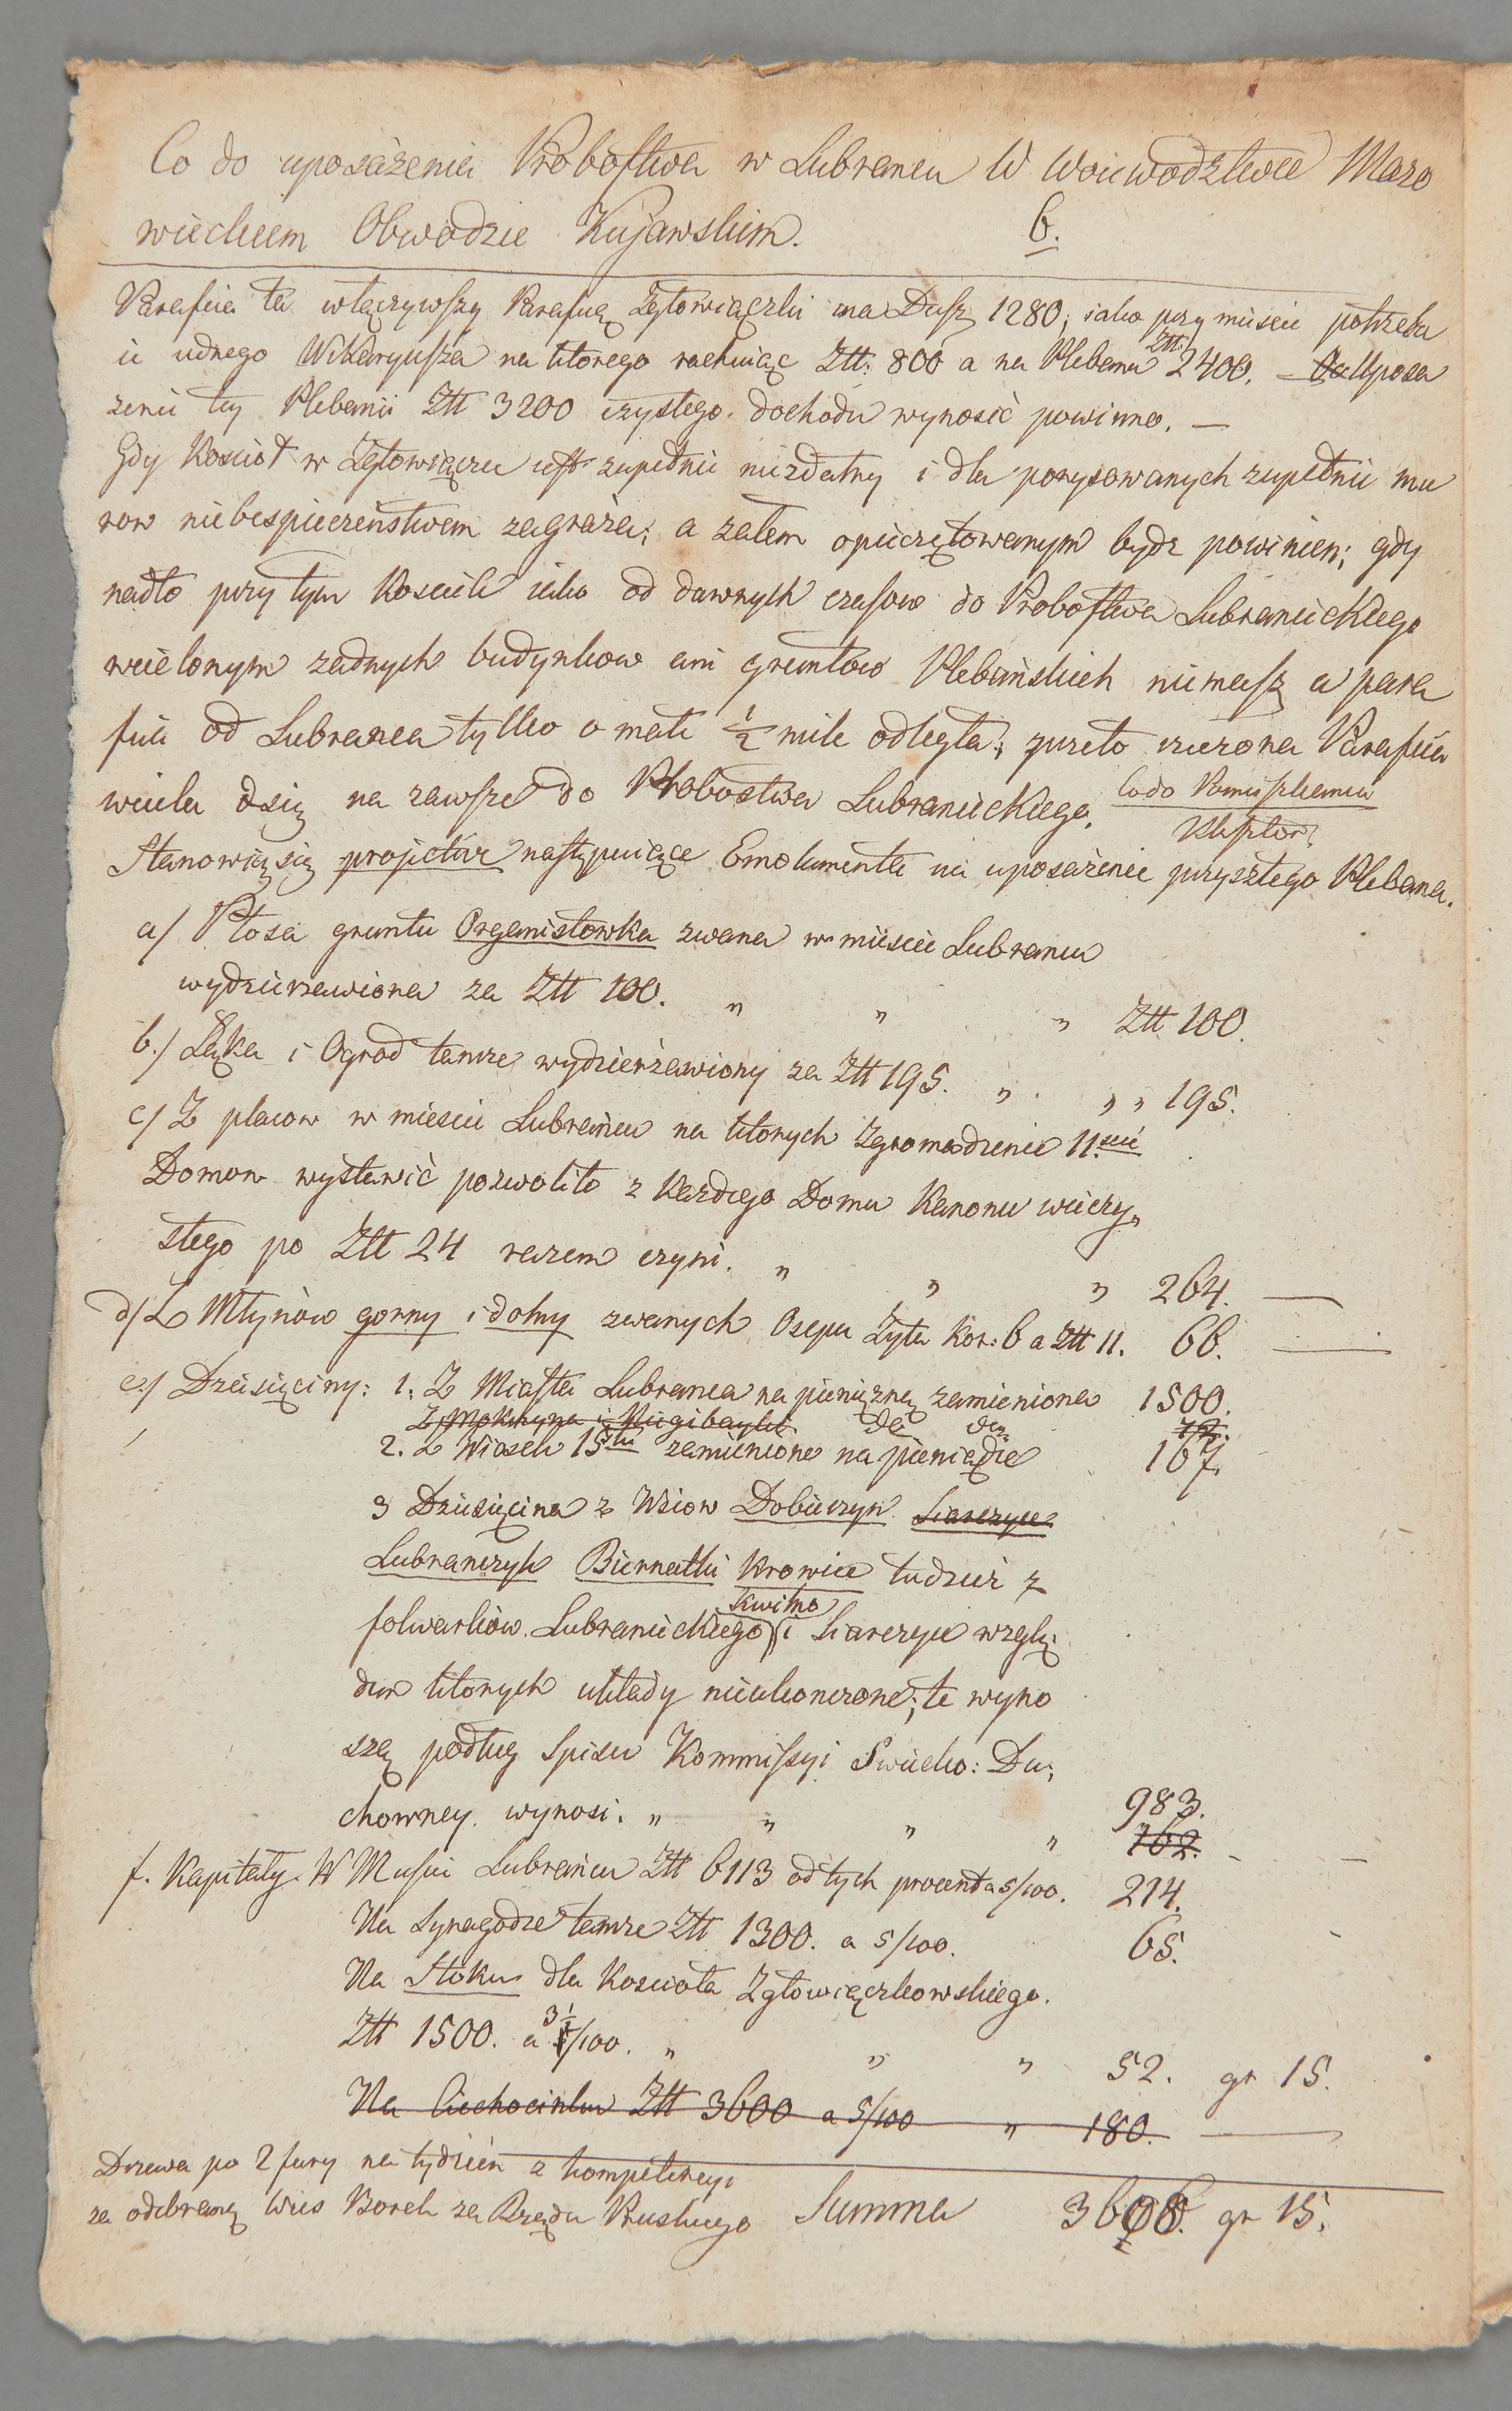 Co do uposażenia Probostwa w Lubrancu W Woiewodztwie Mazo
wieckiem Obwodzie Kujawskim. 6.
Parafiia ta włączywszy Parafią Zgłowiączki ma Dusz 1280, iako przy mieście potrzeba
ie iednego Wikaryusza na ktorego rachuiąc Ztt: 800 a na Plebana Ztt: 2400. — Uposa
zenie tey Plebanii Ztt 3200 czystego dochodu wynosić powinno. —
Gdy Kosciół w Zgłowiączce iest zupełnie niezdatny i dla porysowanych zupełnie mu
row niebespieczeństwem zagraża; a zatem opieczętowanym bydz powinien; gdy
nadto przy tym Kosciele iako od dawnych czasow do Probostwa Lubranieckiego
wcielonym żadnych budynkow ani gruntow Plebańskich niemasz a para
fiia od Lubranca tylko o małe ½ mile odległa; przeto rzeczona Parafiia
wciela się na zawsze do Probostwa Lubranieckiego. Co do Pomieszkania
Klasztor
Stanowią się projective następuiące Emolumenta na uposażenie przyszłego Plebana.
a/ Płosa gruntu Organistowka zwana w mieście Lubrancu
wydzierzawiona za Ztt 100. " " " Ztt 100.
b./ Łąka i Ogrod tamze wydzierżawiony za Ztt 195. " " " 195.
c/ Z placow w mieście Lubrańcu na ktorych Zgromadzenie 11.scie
Domow wystawić pozwoliło z każdego Domu Kanonu wieczy„
stego po Ztt 24 razem czyni. " " " 264. —
d/ Z Młynów gorny i dolny zwanych Osepu Żyta Kor: 6 a Ztt 11. 66. —
e./ Dziesięciny: 1. Z Miasta Lubranca na pieniężną zamieniona 1500.
2. Z Wiosek 15stu zamienione na pieniądze 167.
3 Dziesięcina z Wsiow Dobierzyn Siarczyce
Lubranczyk Biernatki Krowice tudzież z
Kwitno
folwarkiow Lubranieckiego i Siarczyce wzglę
dem ktorych układy nieukonczone; te wyno
szą podług Spisu Kommissyi Swiecko: Du„
chowney wynosi. " " " " 983.
762.
f. Kapitały. W Mieście Lubrańcu Ztt 6113 od tych procent a 5/100. 214.
Na Synagodze tamze Ztt 1300. a 5/100. 65.
Na Stoku dla Kosciola Zgłowiączkowskiego.
Ztt 1500. a 3½/100. " " " 52. gr 15.
Na Ciechocinku Ztt 3600 a 5/100 " 180. —
Drzewa po 2 fury na tydzień z kompetencyi
za odebraną Wies Borek za Rządu Pruskiego Summa 3606. gr 15.